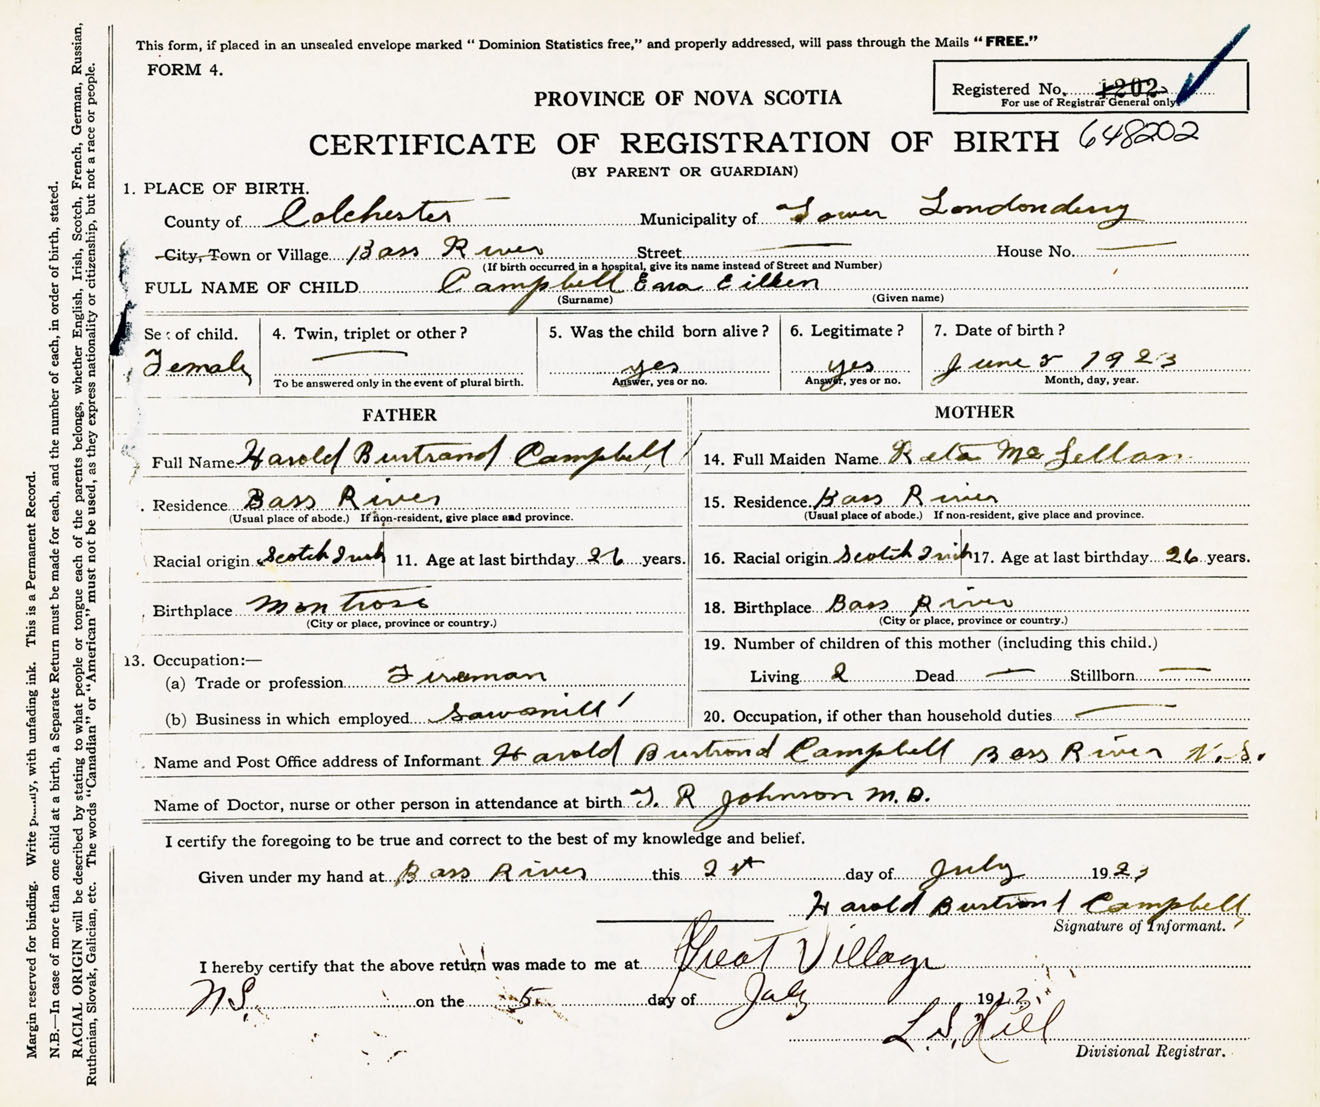 This form, if placed in an unsealed envelope marked “ Dominion Statistics free,” and properly addressed, will pass through the Mails “ FREE.”
FORM 4.
Registered No. 1202
For use of Registrar General only
PROVINCE OF NOVA SCOTIA
CERTIFICATE OF REGISTRATION OF BIRTH 648202
(BY PARENT OR GUARDIAN)
1. PLACE OF BIRTH.
County of Colchester Municipality of Lower Londonderry
City, Town or Village Bass River Street — House No. —
(If birth occurred in a hospital, give its name instead of Street and Number)
FULL NAME OF CHILD Campbell Eileen
(Surname) (Given name)
Se of child. 4. Twin, triplet or other ? 5. Was the child born alive ? 6. Legitimate ? 7. Date of birth ?
Female — yes yes June 1923
To be answered only in the event of plural birth. Answer, yes or no. Answer, yes or no. Month, day, year.
FATHER MOTHER
Full Name Harold Burtrand Campbell 14. Full Maiden Name Reta McLellan
Residence Bass River 15. Residence Bass River
(Usual place of abode.) If non-resident, give place and province. (Usual place of abode.) If non-resident, give place and province.
Racial origin Scotch Irish 11. Age at last birthday 26 years. 16. Racial origin Scotch Irish 17. Age at last birthday 26 years.
Birthplace Montrose 18. Birthplace Bass River
(City or place, province or country.) (City or place, province or country.)
19. Number of children of this mother (including this child.)
13. Occupation:—
(a) Trade or profession Fireman Living 2 Dead — Stillborn —
(b) Business in which employed Sawmill 20. Occupation, if other than household duties —
Name and Post Office address of Informant Harold Burtrand Campbell Bass River N.S.
Name of Doctor, nurse or other person in attendance at birth T. R Johnson M.D.
I certify the foregoing to be true and correct to the best of my knowledge and belief.
Given under my hand at Bass River this 2st day of July 1923
Harold Burtrand Campbell
Signature of Informant.
I hereby certify that the above return was made to me at Great Village
N.S. on the 5 day of July 19
L. S. Hill
Divisional Registrar.
Margin reserved for binding. Write p......ly, with unfading ink. This is a Permanent Record.
N.B.—In case of more than one child at a birth, a Separate Return must be made for each, and the number of each, in order of birth, stated.
RACIAL ORIGIN will be described by stating to what people or tongue each of the parents belongs, whether English, Irish, Scotch, French, German, Russian,
Ruthenian, Slovak, Galician, etc. The words “Canadian” or “American” must not be used, as they express nationality or citizenship, but not a race or people.